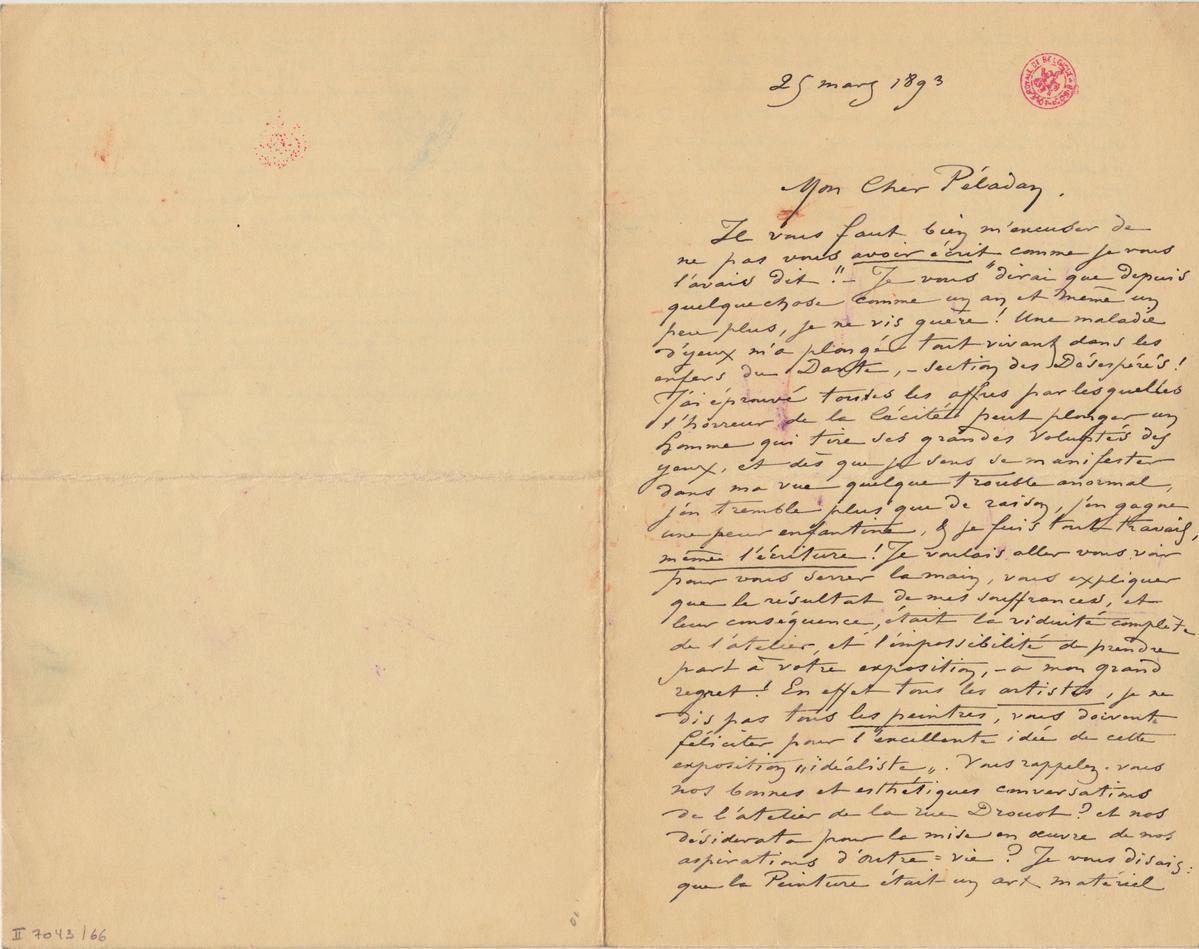 25 mars 1893
Mon Cher Péladan,
Il vous faut bien m'excuser de
ne pas vous avoir écrit comme je vous
l'avais dit !! – Je vous dirai que depuis
quelque chose comme un an et même un
peu plus, je ne vis guère ! Une maladie
d'yeux m'a plongé tout vivant dans les
enfers du Dante, – section des Désespérés !
J'ai éprouvé toutes les affres par lesquelles
l'horreur de la Cécité peut plonger un
homme qui tire ses grandes voluptés des
yeux, et dès que je sens se manifester
dans ma vue quelque trouble anormal,
j'en tremble plus que de raison, j'en gagne
une peur enfantine, & je fuis tout travail,
même l'écriture ! Je voulais aller vous voir
pour vous serrer la main, vous expliquer
que le résultat de mes souffrances, et
leur conséquence, était la viduité complète
de l'atelier, et l'impossibilité de prendre
part à votre exposition, – à mon grand
regret ! En effet tous les artistes, je ne
dis pas tous les peintres, vous doivent
féliciter pour l'excellente idée de cette
exposition „idéaliste„. Vous rappelez-vous
nos bonnes et esthétiques conversations
de l'atelier de la rue Drouot ? et nos
désiderata pour la mise en œuvre de nos
aspirations d'outre=vie ? Je vous disais :
que la Peinture était un art matériel
II 7043/66